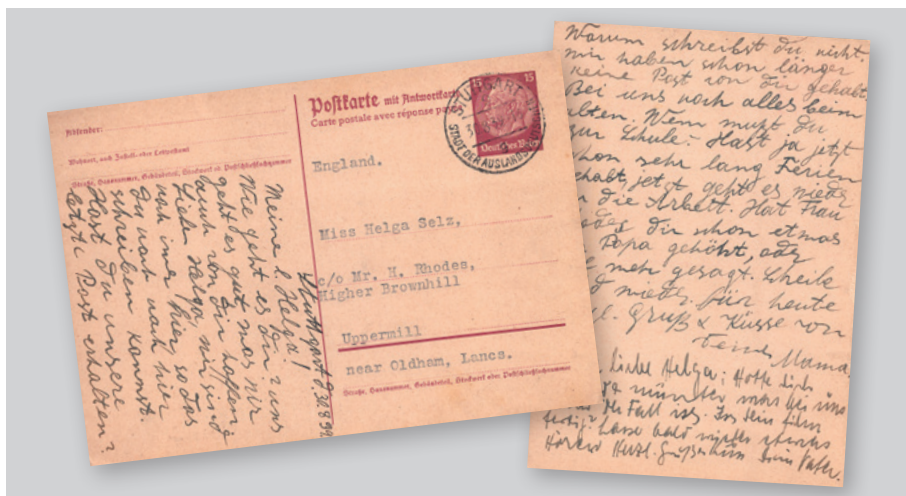 Absender:
Wohnort, auch Zustell- oder Leitpostamt
Straße, Hausnummer, Gebäudeteil, Stockwerk od. Postschließfachnummer
Postkarte mit Antwortkarte
Carte postale avec réponse payée
15 15
Deutsches Reich
STADT DER AUSLANDS
England.
Miss Helga Selz,
c/o Mr. H. Rhodes,
Higher Brownhill
Uppermill
near Oldham, Lancs.
Straße, Hausnummer, Gebäudeteil, Stockwerk oder Postschließfachnummer
Stuttgart d. 30.8.39
Meine l. Helga!
Wie geht es dir? uns
geht es gut was wir
auch von dir hoffen
Lieber Helga, wir sind
noch immer hier, so das
du noch nach hier
schreiben kannst.
Hast Du unsere
letzte Post erhalten?
Warum schreibst du nicht.
wir haben schon länger
keine Post von dir gehabt.
Bei uns noch alles beim
alten. Wenn mußt du
zur Schule? Hast ja jetzt
schon sehr lang Ferien
gehabt, jetzt geht es wieder
an die Arbeit. Hat Frau
dir schon etmas
Papa gehöht, oder
mehr gesagt. Schreib
wieder. für heute
Gruß & Küsse von
Deine Mama.
Liebe Helga; Hoffe dich
munter was bei uns
der Fall ist. Ist dein film
fertig? Lasse bald wieder etwas
Hören Herzl. Grüße dein Vater.